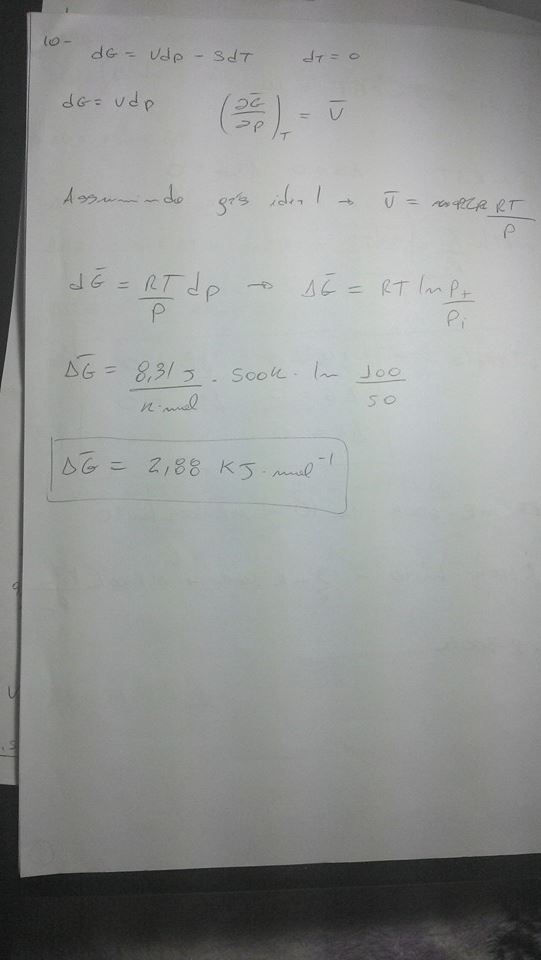 10-
dG = Vdp - SdT dT = 0
dG = Vdp (∂G̅/∂P)_T = V̅
Assumindo gás ideal → V̅ = RT/P
dG̅ = RT/P dp → ΔG̅ = RT ln Pf/Pi
ΔG̅ = 8,31 J/K·mol · 500K · ln 100/50
ΔG̅ = 2,88 KJ·mol⁻¹